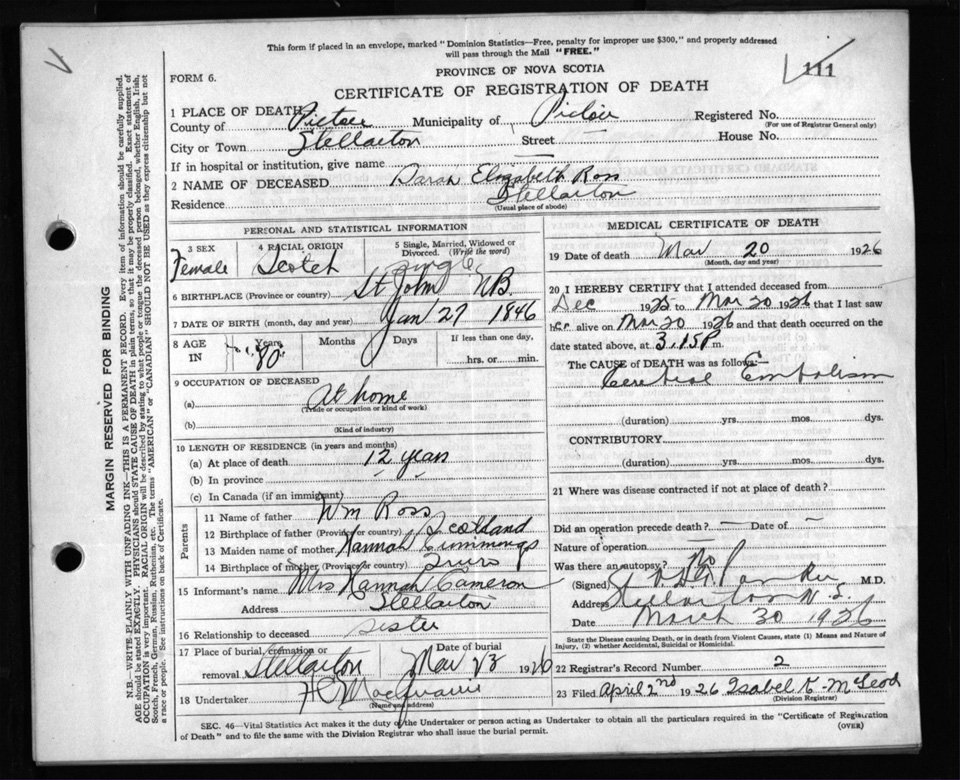 This form if placed in an envelope, marked "Dominion Statistics—Free, penalty for improper use $300," and properly addressed
will pass through the Mail "FREE."
PROVINCE OF NOVA SCOTIA
111
FORM 6.
CERTIFICATE OF REGISTRATION OF DEATH
1 PLACE OF DEATH
County of Pictou Municipality of Pictou Registered No.
(For use of Registrar General only)
City or Town Stellarton Street — House No.
If in hospital or institution, give name —
2 NAME OF DECEASED Sarah Elizabeth Ross
Residence Stellarton
(Usual place of abode)
PERSONAL AND STATISTICAL INFORMATION
3 SEX Female
4 RACIAL ORIGIN Scotch
5 Single, Married, Widowed or Divorced. (Write the word) Single
6 BIRTHPLACE (Province or country) St John NB
7 DATE OF BIRTH (month, day and year) Jan 27 1846
8 AGE IN Years 80 Months Days If less than one day, hrs. or min.
9 OCCUPATION OF DECEASED
(a) At home
(Trade or occupation or kind of work)
(b)
(Kind of industry)
10 LENGTH OF RESIDENCE (in years and months)
(a) At place of death 12 years
(b) In province
(c) In Canada (if an immigrant)
Parents
11 Name of father Wm Ross
12 Birthplace of father (Province or country) Scotland
13 Maiden name of mother Hannah Cimmings
14 Birthplace of mother (Province or country) Truro
15 Informant's name Mrs Hannah Cameron
Address Stellarton
16 Relationship to deceased sister
17 Place of burial, cremation or removal Stellarton Date of burial Mar 23 1926
18 Undertaker
(Name and address)
MEDICAL CERTIFICATE OF DEATH
19 Date of death Mar 20 1926
(Month, day and year)
20 I HEREBY CERTIFY that I attended deceased from
Dec 1925 to Mar 20 1926 that I last saw
her alive on Mar 20 1926 and that death occurred on the
date stated above, at 3.15 P m.
The CAUSE of DEATH was as follows:—
Cerebral Embolism
(duration) yrs. mos. dys.
CONTRIBUTORY
(duration) yrs. mos. dys.
21 Where was disease contracted if not at place of death?
Did an operation precede death? — Date of —
Nature of operation —
Was there an autopsy? No
(Signed) M.D.
Address Stellarton N.S.
Date March 30 1926
State the Disease causing Death, or in death from Violent Causes, state (1) Means and Nature of
Injury, (2) whether Accidental, Suicidal or Homicidal.
22 Registrar's Record Number 2
23 Filed April 2nd 1926 Isabel K. McLeod
(Division Registrar)
SEC. 46—Vital Statistics Act makes it the duty of the Undertaker or person acting as Undertaker to obtain all the particulars required in the "Certificate of Registration
of Death" and to file the same with the Division Registrar who shall issue the burial permit.
(OVER)
MARGIN RESERVED FOR BINDING
N.B.—WRITE PLAINLY WITH UNFADING INK—THIS IS A PERMANENT RECORD. Every item of information should be carefully supplied.
AGE should be stated EXACTLY. PHYSICIANS should STATE CAUSE OF DEATH in plain terms, so that it may be properly classified. Exact statement of
OCCUPATION is very important. RACIAL ORIGIN will be described by stating to what people or tongue the deceased person belonged, whether English, Irish,
Scotch, French, German, Russian, Ruthenian, etc. The terms "AMERICAN" or "CANADIAN" SHOULD NOT BE USED as they express citizenship but not
a race or people. See instructions on back of Certificate.